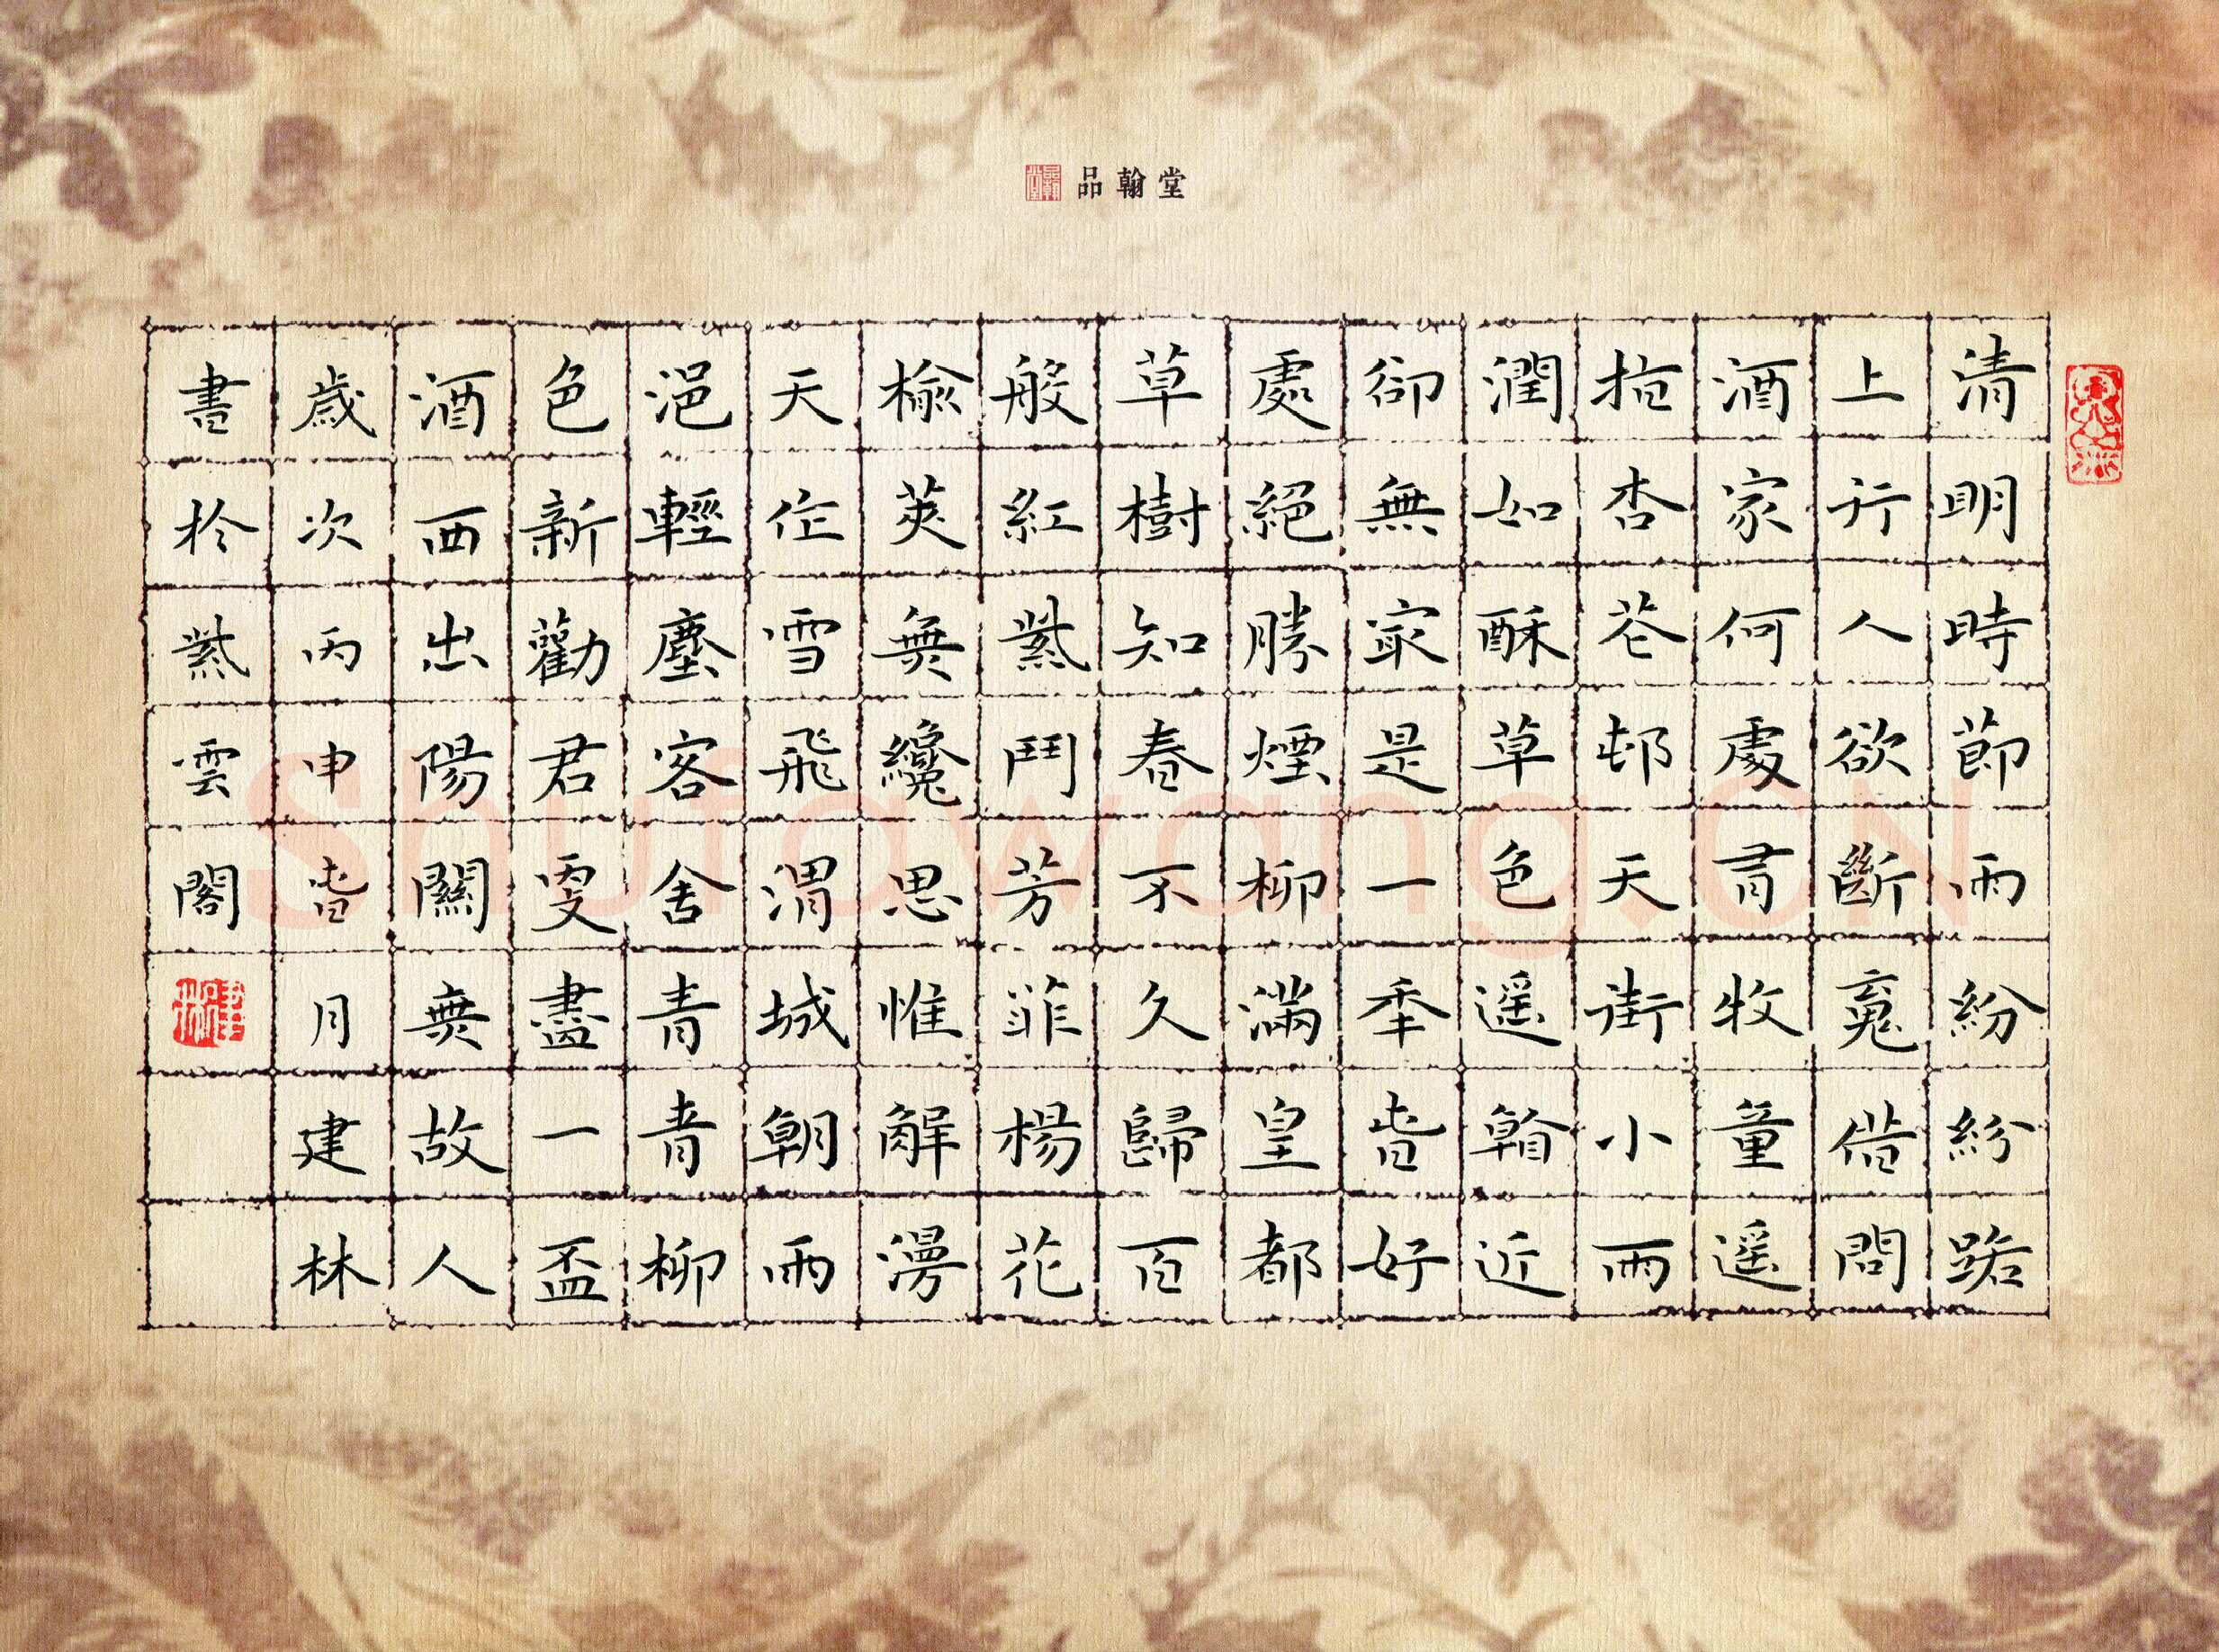 品翰堂
清明時節雨紛紛路
上行人欲斷魂借問
酒家何處有牧童遥
指杏花邨天街小雨
潤如酥草色遥看近
卻無最是一年春好
處絕勝煙柳滿皇都
草樹知春不久歸百
般紅紫鬥芳菲楊花
榆莢無纔思惟解漫
天作雪飛渭城朝雨
浥輕塵客舍青青柳
色新勸君更盡一盃
酒西出陽關無故人
歲次丙申春月建林
書於紫雲閣
Shufawang.CN